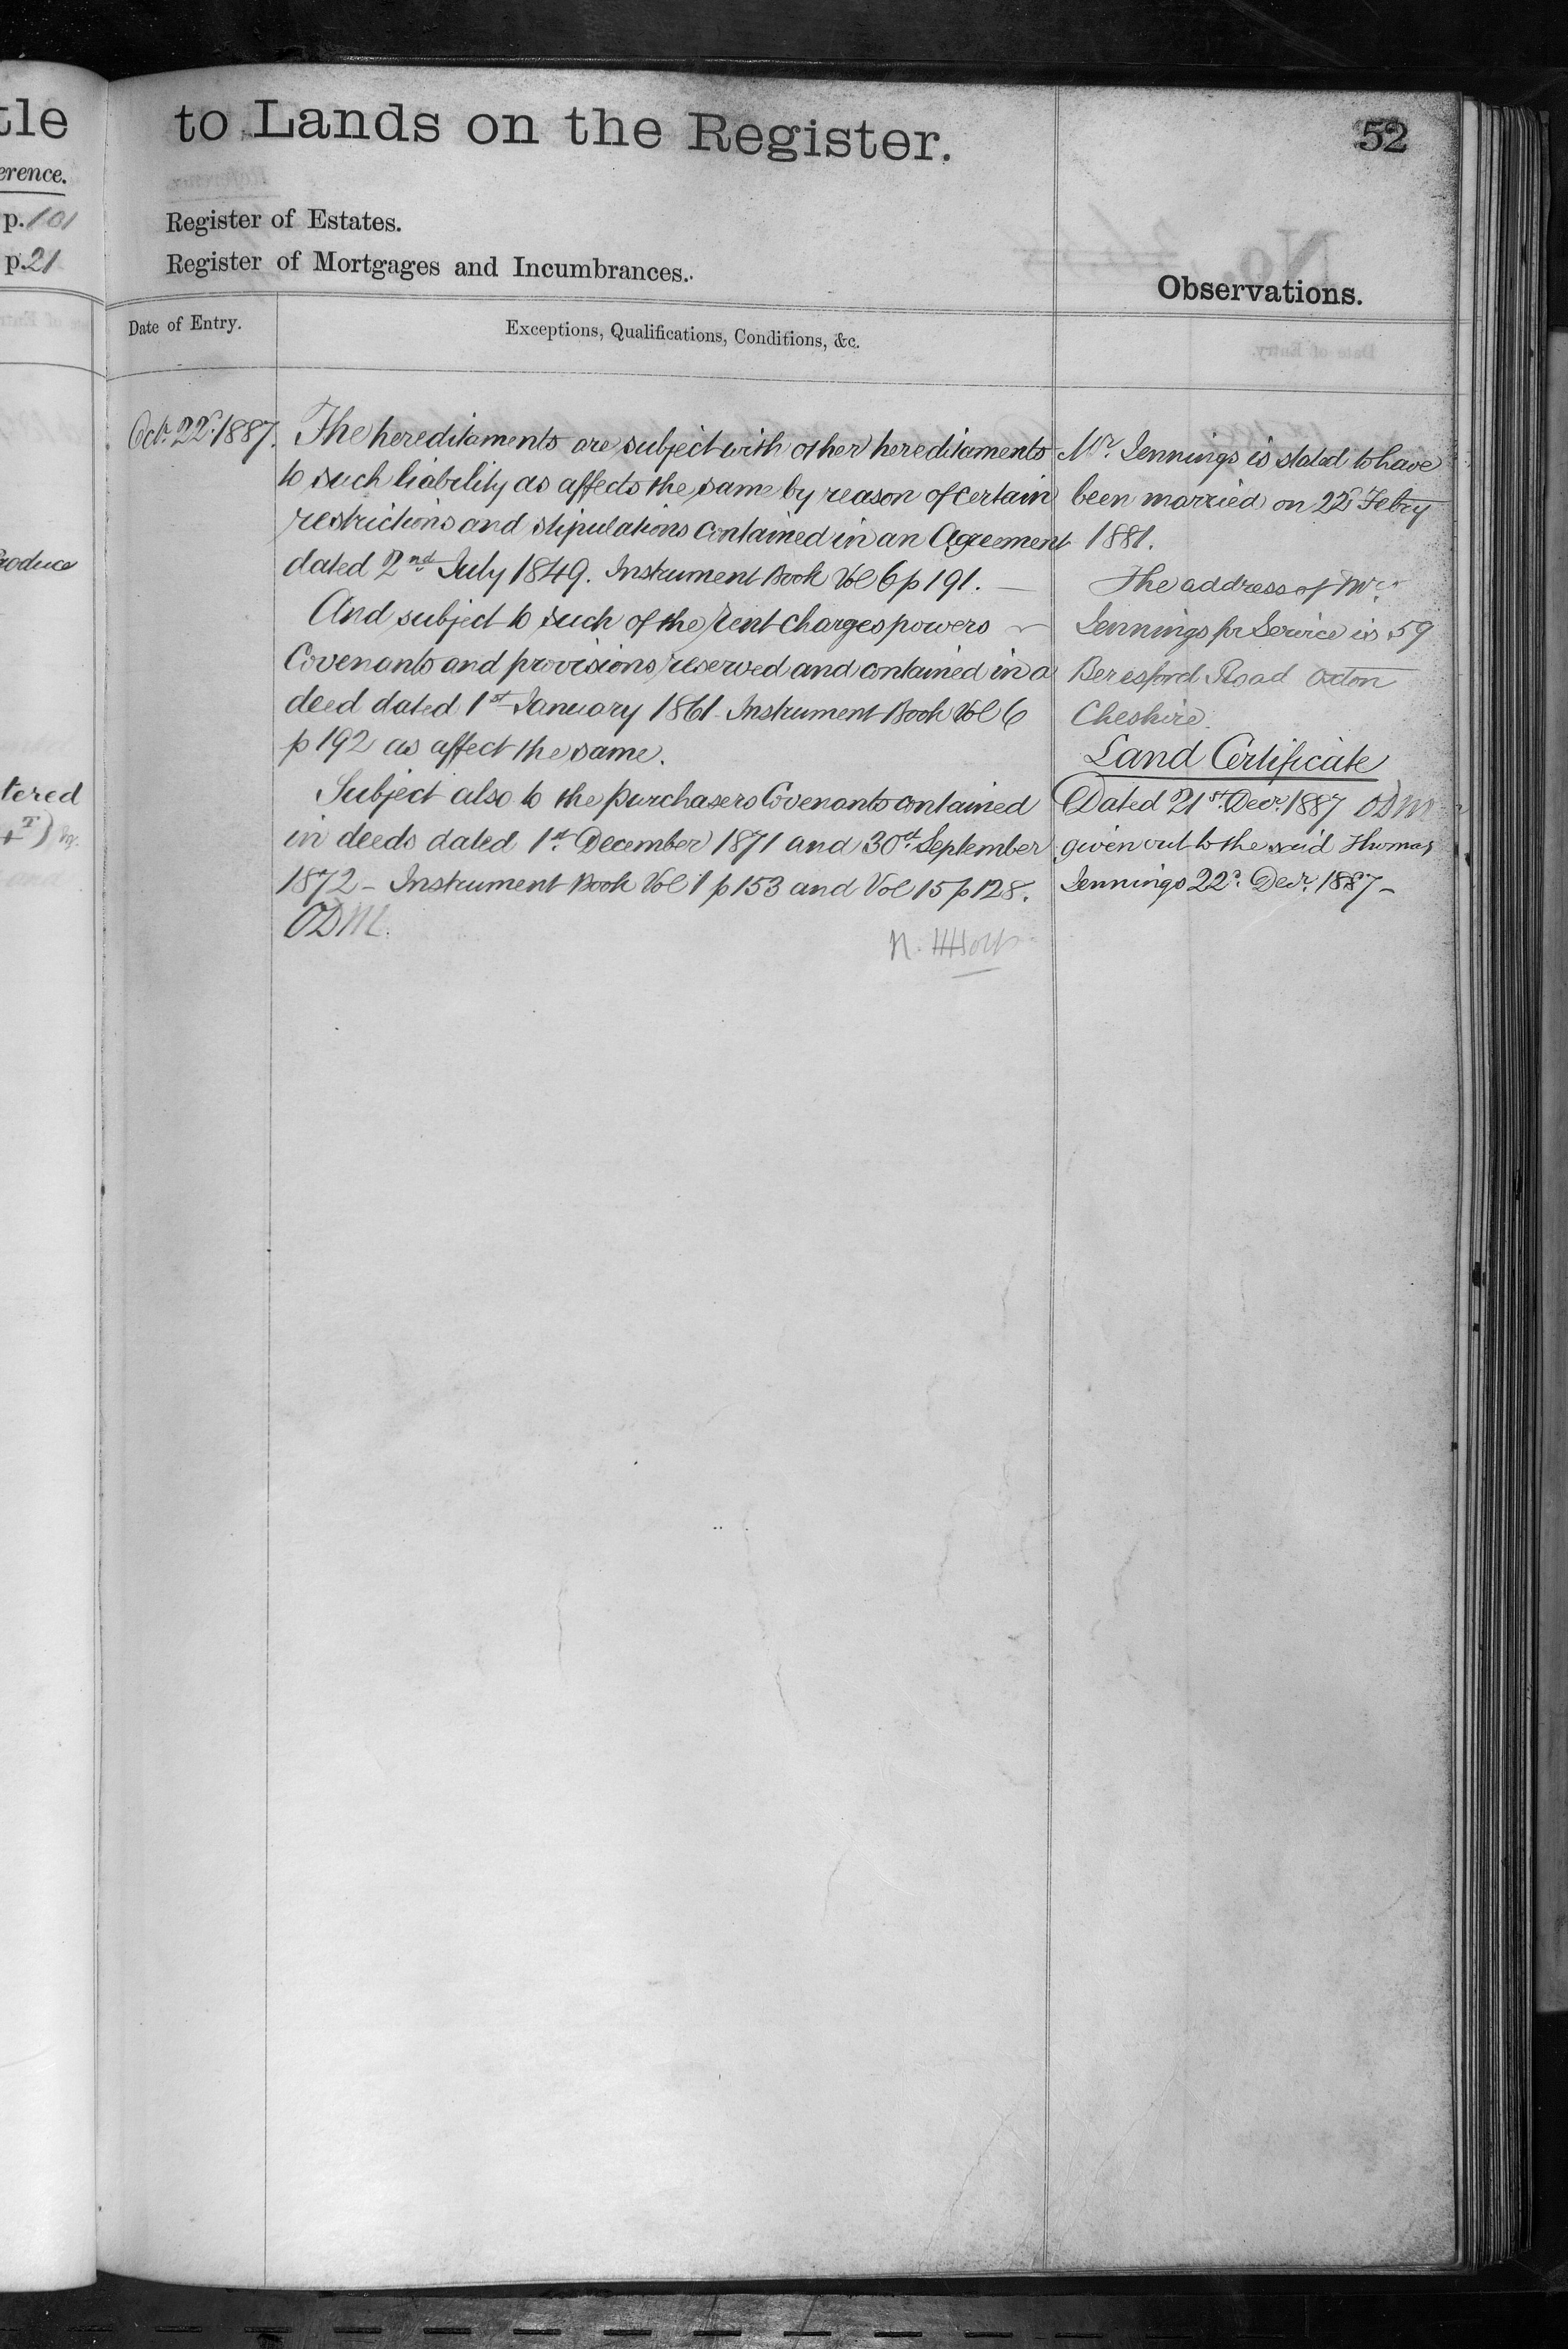 tle
erence.
p. 101
p. 21
roduce
tered
to Lands on the Register.
52
Register of Estates.
Register of Mortgages and Incumbrances.
Observations.
Date of Entry.
Exceptions, Qualifications, Conditions, &c.
Octr. 22d. 1887.
The hereditaments are subject with other hereditaments
to such liability as affects the same by reason of certain
restrictions and stipulations contained in an Agreement
dated 2nd July 1849. Instrument Book Vol 6 p 191. —
And subject to such of the rent charges powers
Covenants and provisions reserved and contained in a
deed dated 1st January 1861 Instrument Book Vol 6
p 192 as affect the same.
Subject also to the purchasers Covenants contained
in deeds dated 1st. December 1871 and 30th September
1872 – Instrument Book Vol 1 p 153 and Vol 15 p 128.
ODM.
Mr. Jennings is stated to have
been married on 22d Febry
1881.
The address of Mr.
Jennings for Service is 59
Beresford Road Oxton
Cheshire.
Land Certificate
Dated 21st. Decr. 1887 ODM
given out to the said Thomas
Jennings 22d. Decr. 1887 –